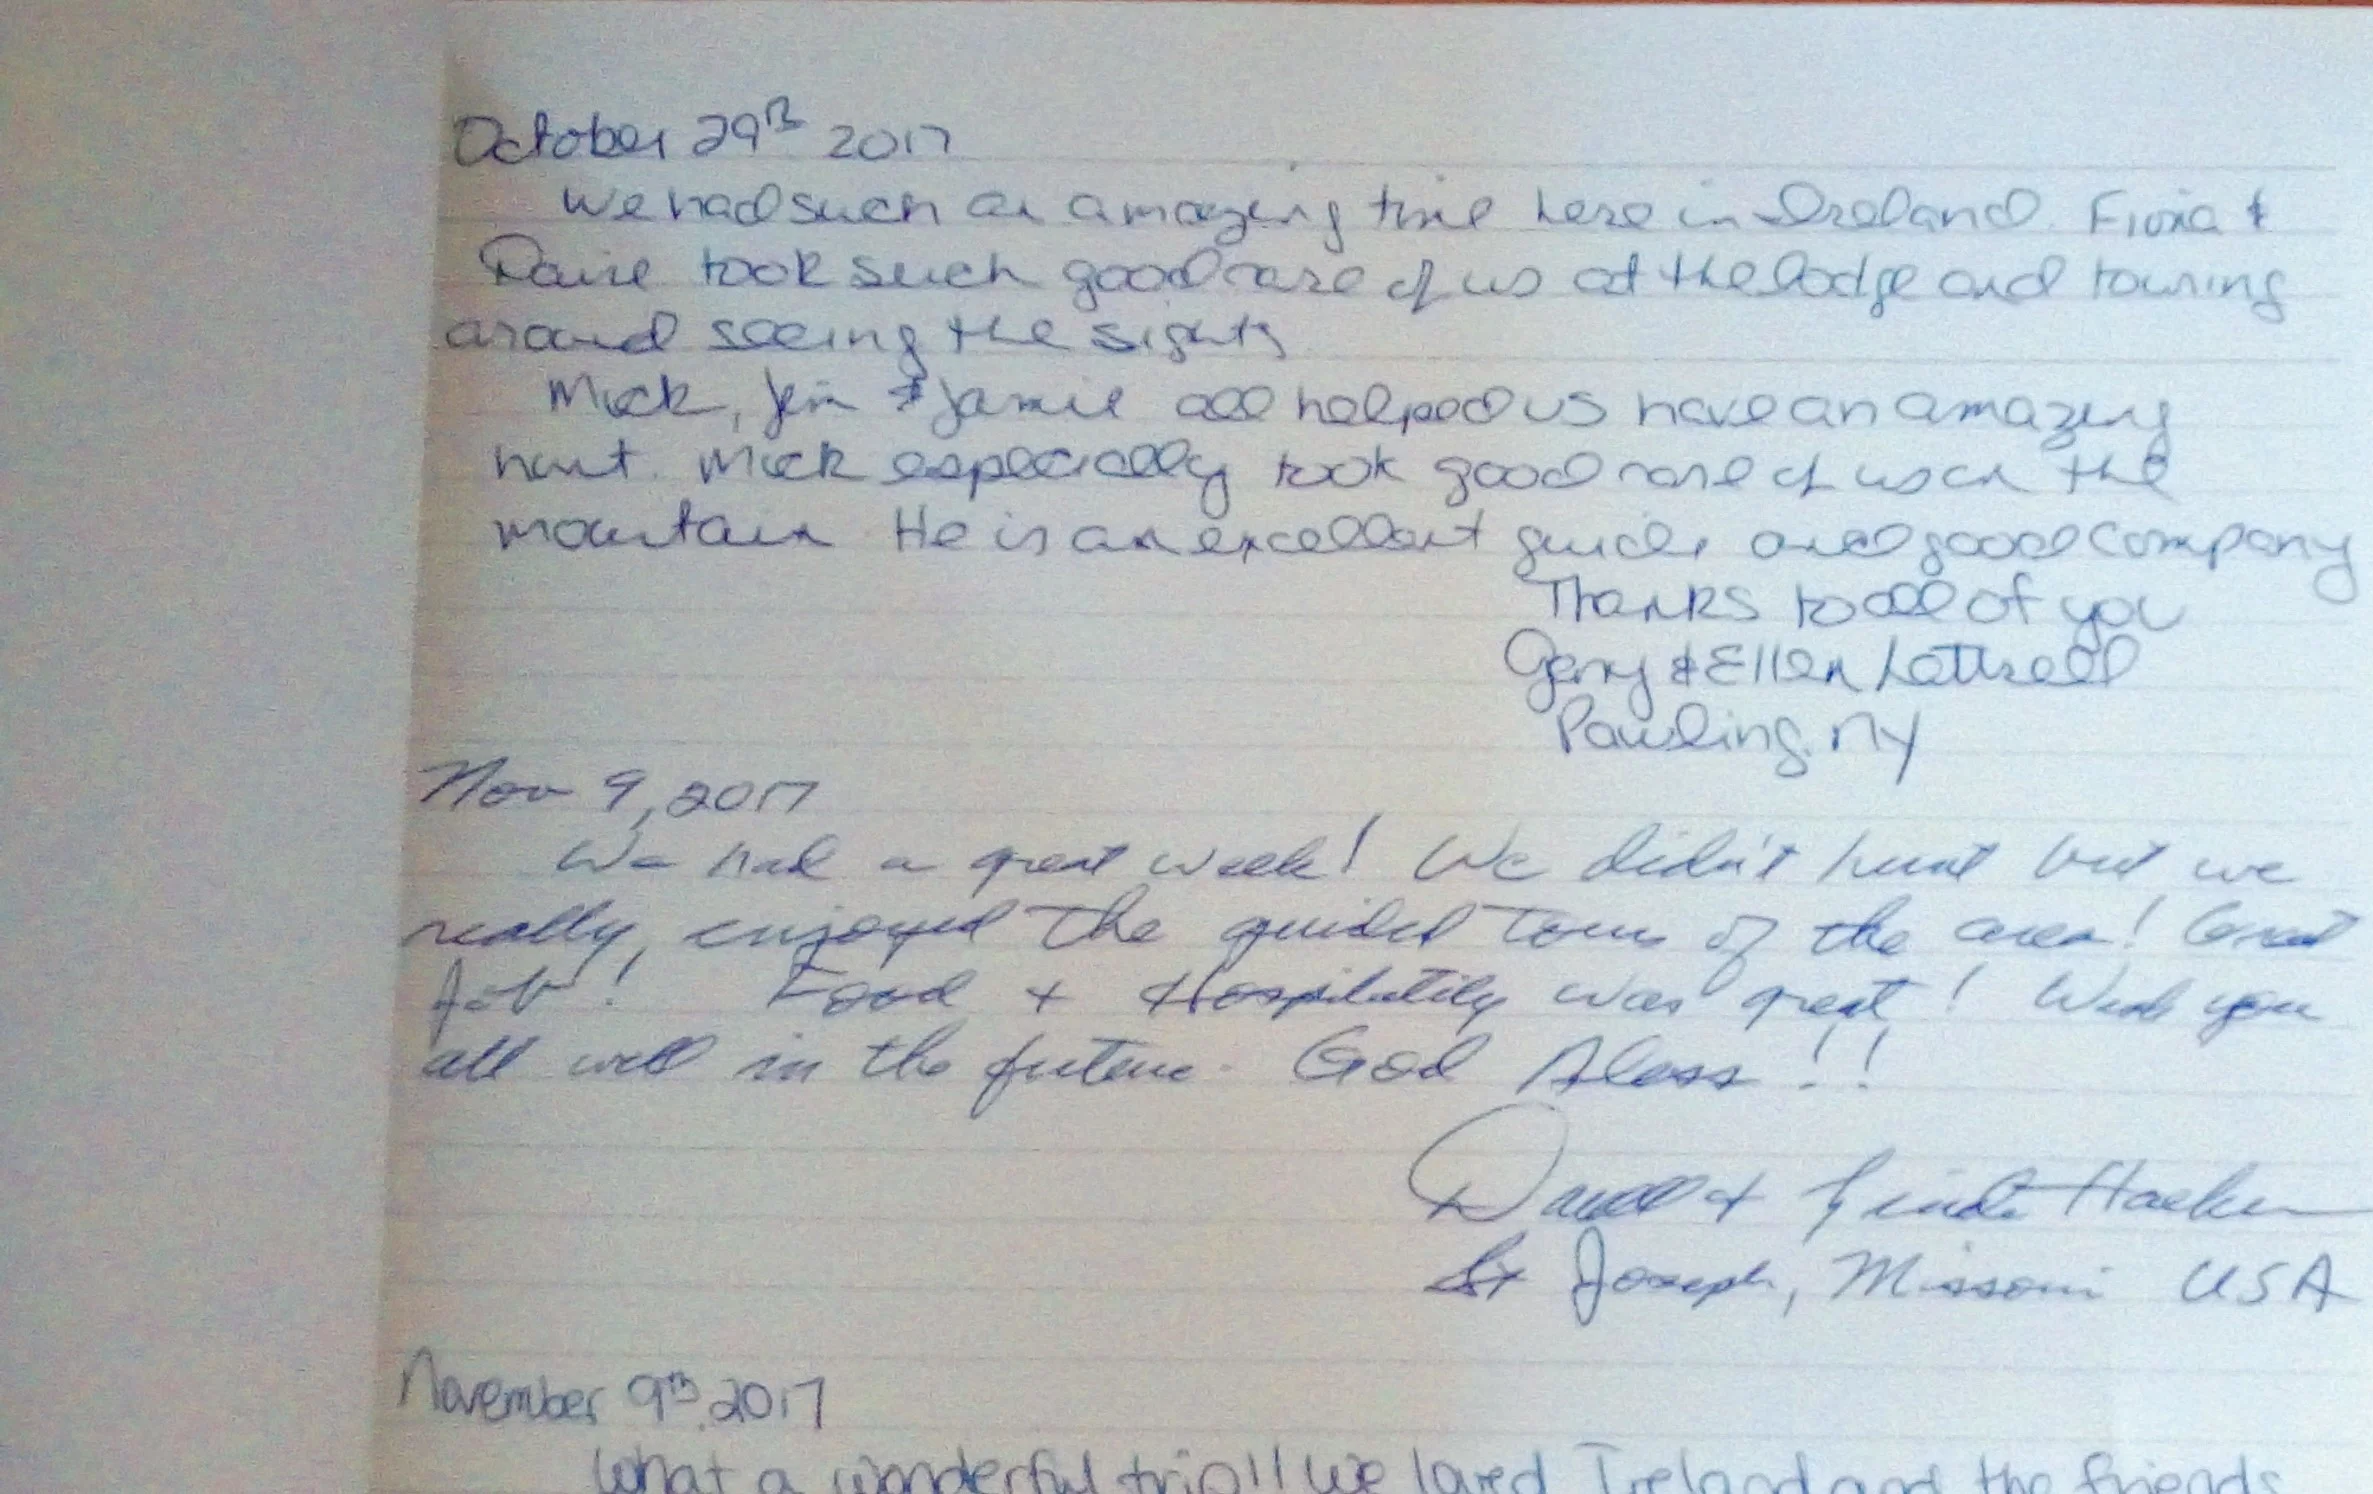 October 29th 2017
We had such an amazing time here in Ireland. Fiona &
Daire took such good care of us at the lodge and touring
around seeing the sights
Mick, Jim & Jamie all helped us have an amazing
hunt. Mick especially took good care of us on the
mountain He is an excellent guide and good company
Thanks to all of you
Gerry & Ellen Lattrell
Pawling, NY
Nov 9, 2017
We had a great week! We didn't hunt but we
really, enjoyed the guided tours of the area! Great
Job! Food + Hospitality was great! Wish you
all well in the future. God Bless!!
Darrell + Linda Hacker
St Joseph, Missouri USA
November 9th, 2017
What a wonderful trip!! We loved Ireland and the friends